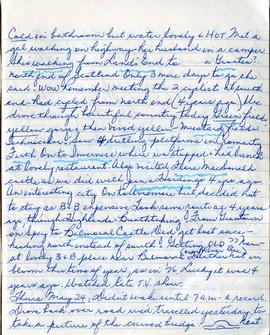 Cold in bathroom but water lovely & HOT. Met a
gal walking on highway - her husband in a camper
She's walking from Land's End to
north end of Scotland Only 3 more days to go she
said! Wow remember meeting the 2 cyclist at south
end had cycled from north end (4 years ago). We
drove through beautiful country today Green fields
yellow gorse & then vivid yellow mustard fields
Saw 4 drilling platforms in
Firth On to Inverness where we stopped & had lunch
at lovely restaurant. Also visited
as we did with the 4 yrs ago.
An interesting city On to but decided not
to stay as B & B expensive. Took same route as 4 years
ago through Highlands Breathtaking! From Grantown
on Spey to Balmoral Castle Did get lost once -
heading north instead of south! Getting OLD
at lovely B & B place near Balmoral
this time of year, so in '76 Lucky it was 4
years ago. Watched late T.V. show.
Thurs May 24, Didn't wake until 7 am - a record.
Drove back over road we'd travelled yesterday to
take a picture of the curved bridge